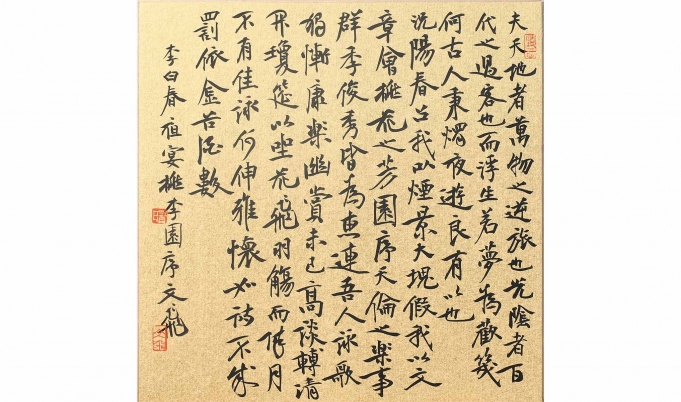 夫天地者萬物之逆旅也光陰者百
代之過客也而浮生若夢為歡幾
何古人秉燭夜遊良有以也
況陽春召我以煙景大塊假我以文
章會桃花之芳園序天倫之樂事
群季俊秀皆為惠連吾人詠歌
獨慚康樂幽賞未已高談轉清
開瓊筵以坐花飛羽觴而醉月
不有佳詠何伸雅懷如詩不成
罰依金谷酒數
李白春夜宴桃李園序文飛